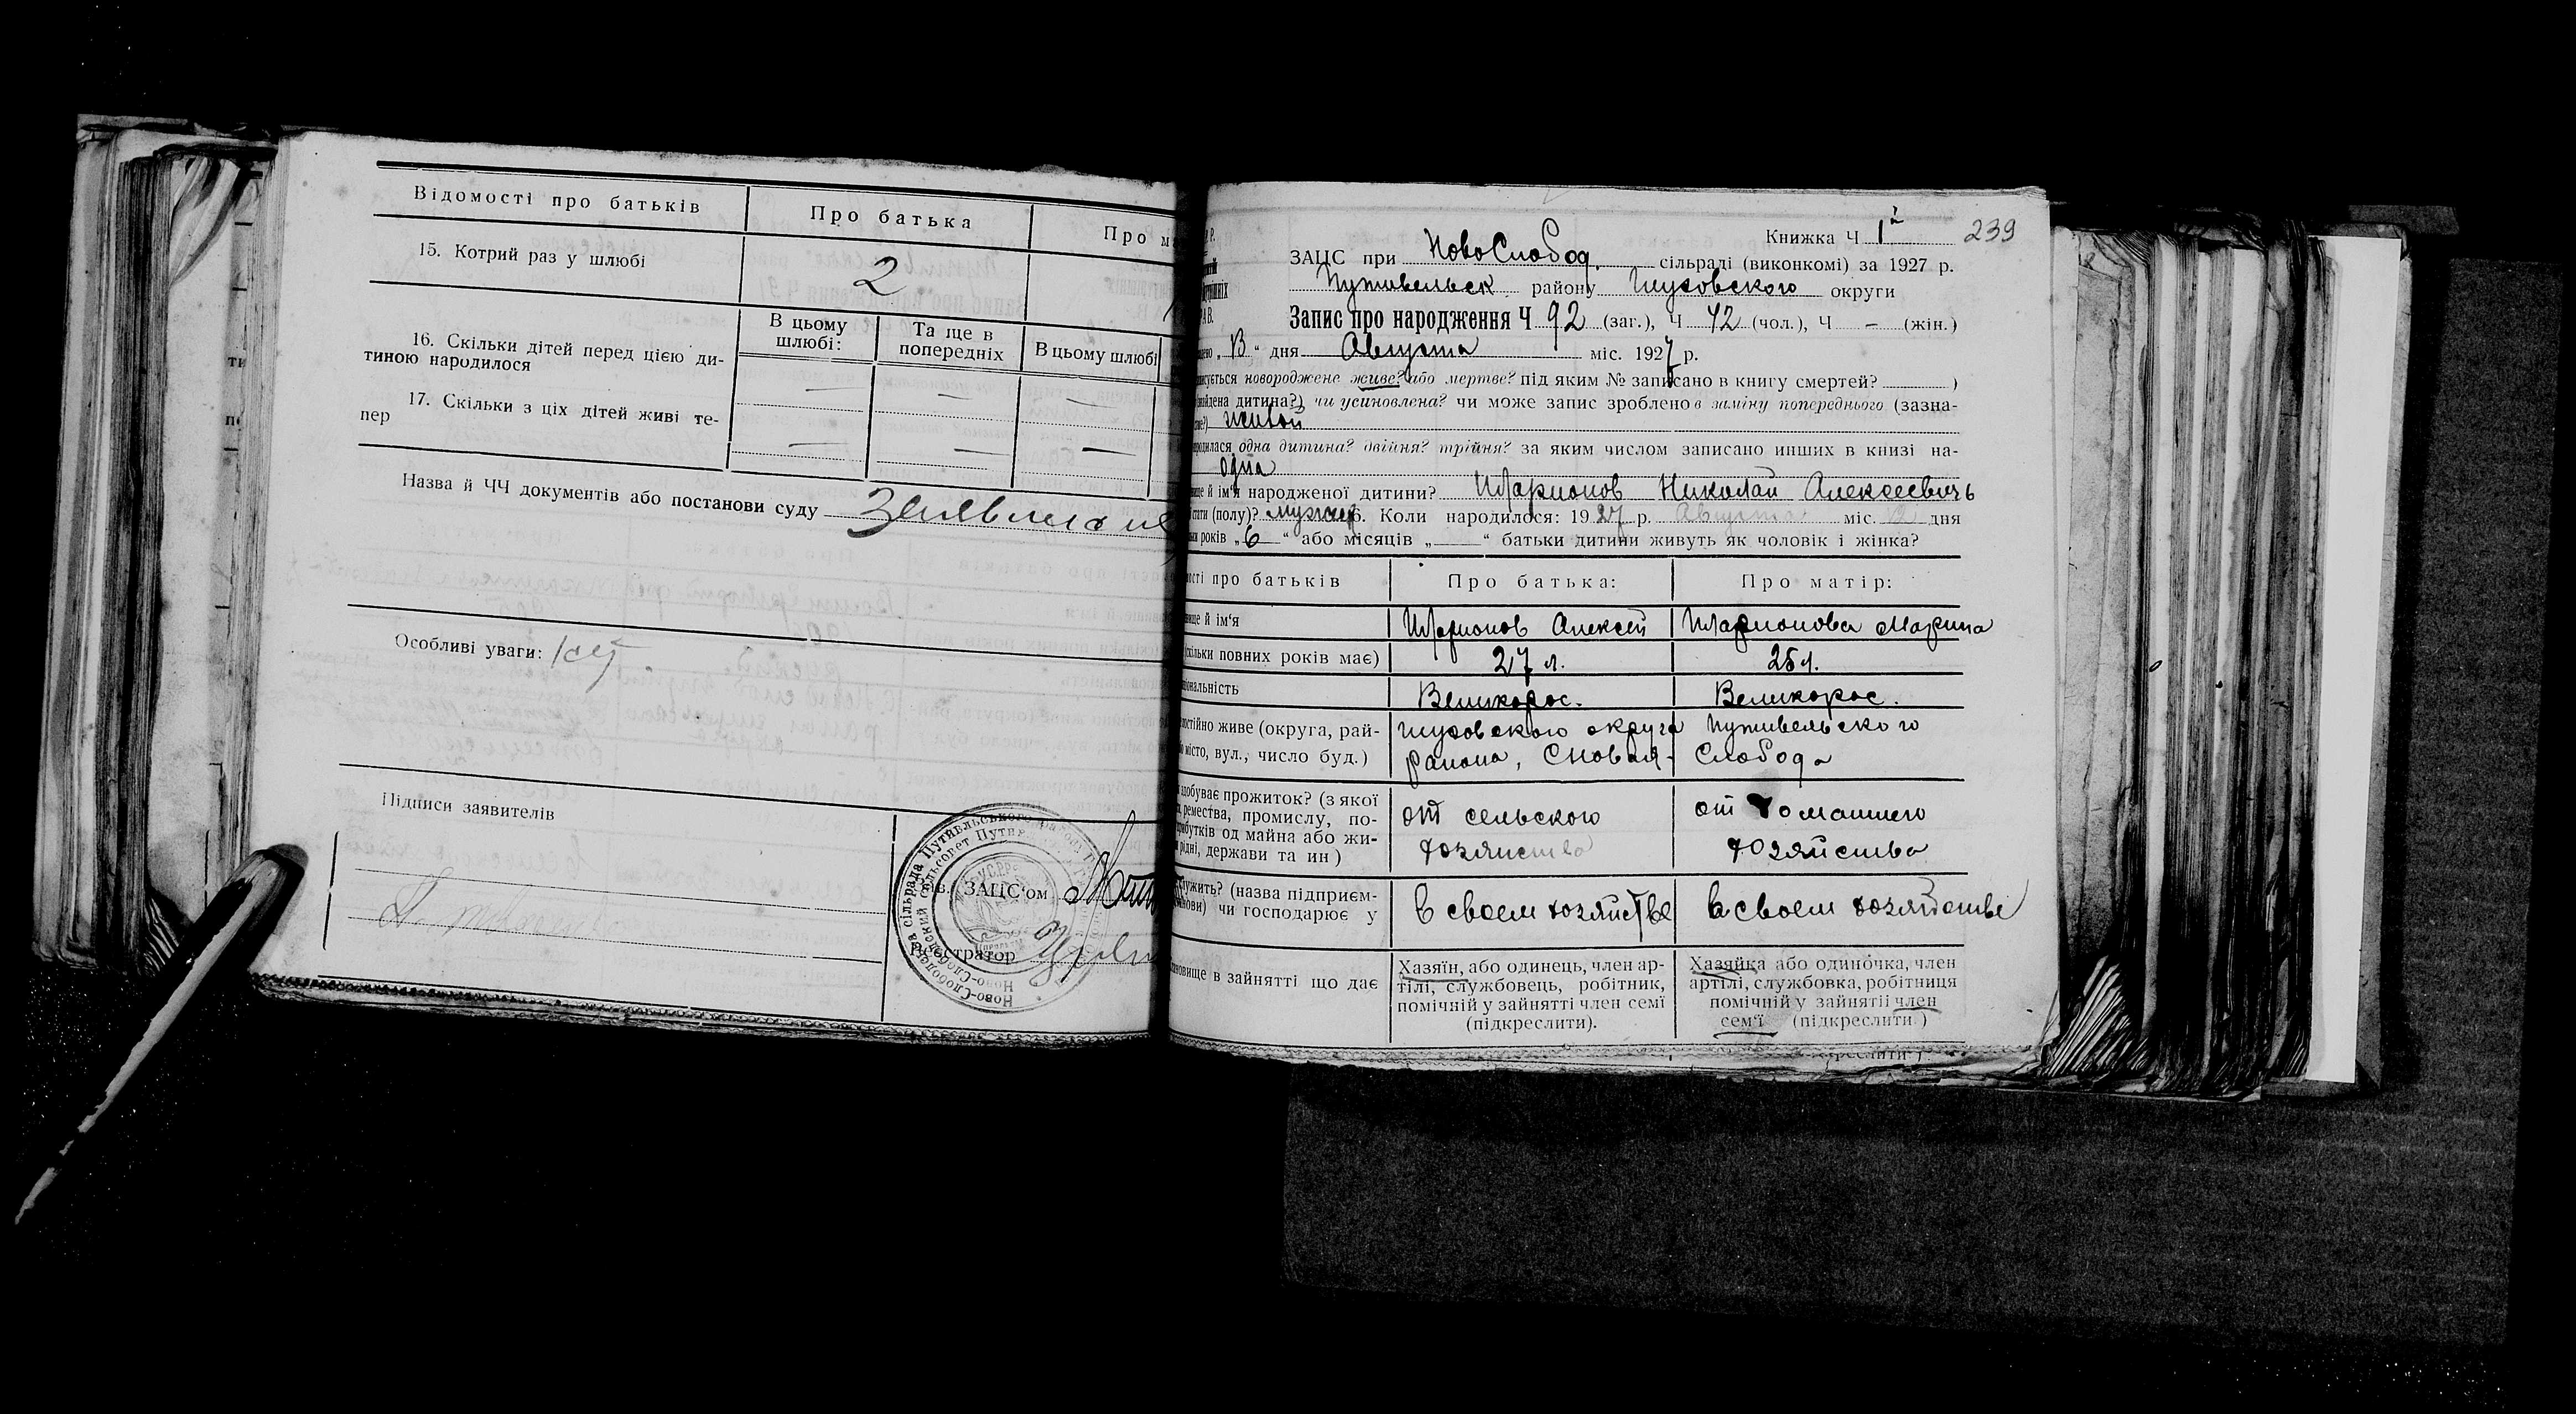 Відомості про батьків
Про батька
Про м
15. Котрий раз у шлюбі
2
16. Скільки дітей перед цією ди-
тиною народилося
В цьому
шлюбі:
Та ще в
попередніх
В цьому шлюбі
17. Скільки з ціх дітей живі те-
пер
Назва й ЧЧ документів або постанови суду
Особливі уваги:
Підписи заявителів
Зав. ЗАЦС'ом
Реєстратор
Книжка Ч 1
239
ЗАЦС при НовоСлобод. сільраді (виконкомі) за 1927 р.
Путивельск району Глуховского округи
Запис про народження Ч 92 (заг.), Ч 42 (чол.), Ч – (жін.)
„13“ дня Августа міс. 1927 р.
новороджене живе? або мертве? під яким № записано в книгу смертей? )
дитина? чи усиновлена? чи може запис зроблено в заміну попереднього (зазна-
живой
одна дитина? двійня? трійня? за яким числом записано инших в книзі на-
одна
й ім'я народженої дитини? Иларионов Николай Алексеевичь
(полу)? 6. Коли народилося: 1927 р. Августа міс. дня
років „6“ або місяців „ “ батьки дитини живуть як чоловік і жінка?
про батьків
Про батька:
Про матір:
й ім'я
Иларионов Алексей
Иларионова Марина
повних років має)
27 л.
25 л.
Великорос.
Великорос.
живе (округа, рай-
місто, вул., число буд.)
Глуховского округа Путивельского
района, С Новая- Слобода
добуває прожиток? (з якої
ремества, промислу, по-
од майна або жи-
рідні, держави та ин)
от сельского
хозяйства
от домашнего
хозяйства
(назва підприєм-
чи господарює у
в своем хозяйстве
в своем хозяйстве
в зайнятті що дає
Хазяїн, або одинець, член ар-
тілі, службовець, робітник,
помічній у зайнятті член семї
(підкреслити).
Хазяйка або одиночка, член
артілі, службовка, робітниця
помічній у зайнятіі член
сем'ї (підкреслити)